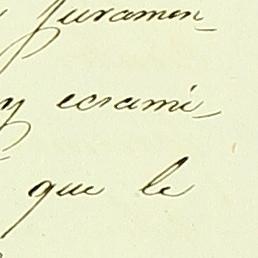 y juramen-
y ecsami-
que le